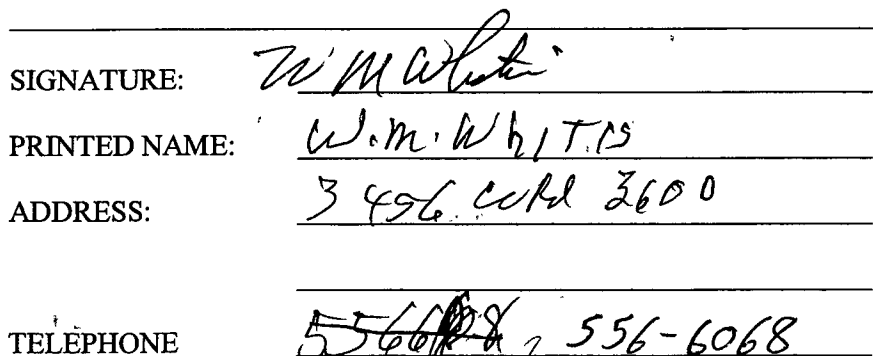 SIGNATURE: W M Whitis
PRINTED NAME: W.M. WhITIS
ADDRESS: 3456 CO Rd 3600
TELEPHONE 556-6068